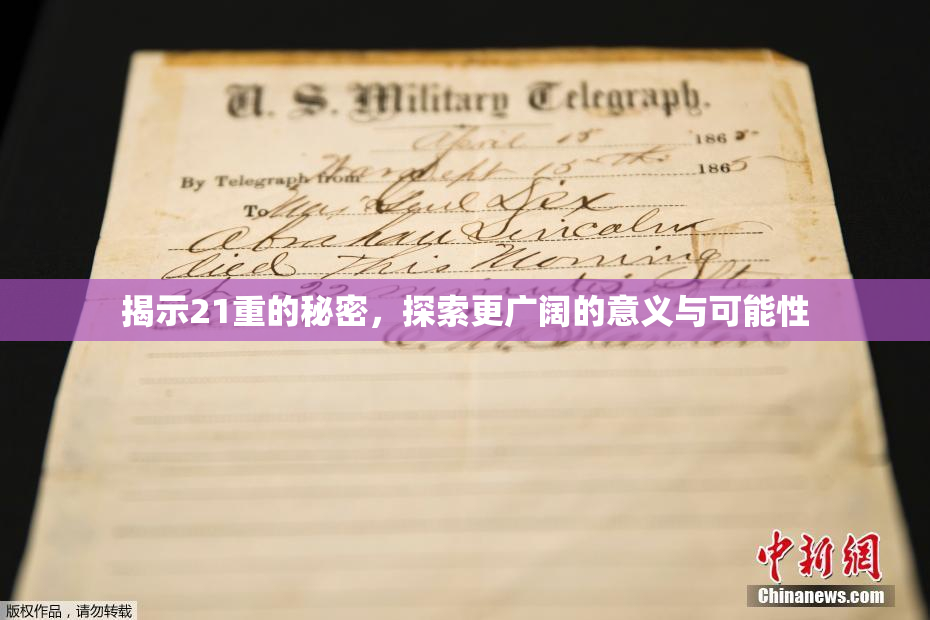 U. S. Military Telegraph.
April 15 1865
By Telegraph from War Dept 15th 1865
To Maj Genl Dix
Abraham Lincoln
died This Morning
at 22 minutes after
揭示21重的秘密，探索更广阔的意义与可能性
E. M. Stanton
中新网
Chinanews.com
版权作品，请勿转载